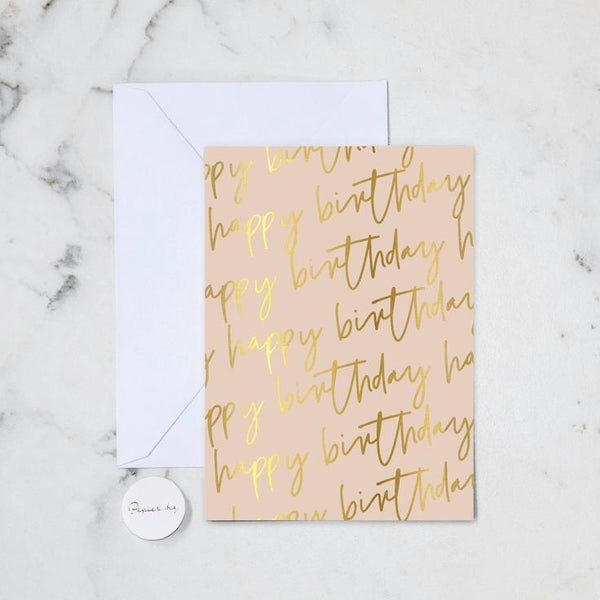 ppy birthday
happy birthday
appy birthday h
y happy birthday
ppy birthday ha
happy birthday
appy birthday
happy birthday